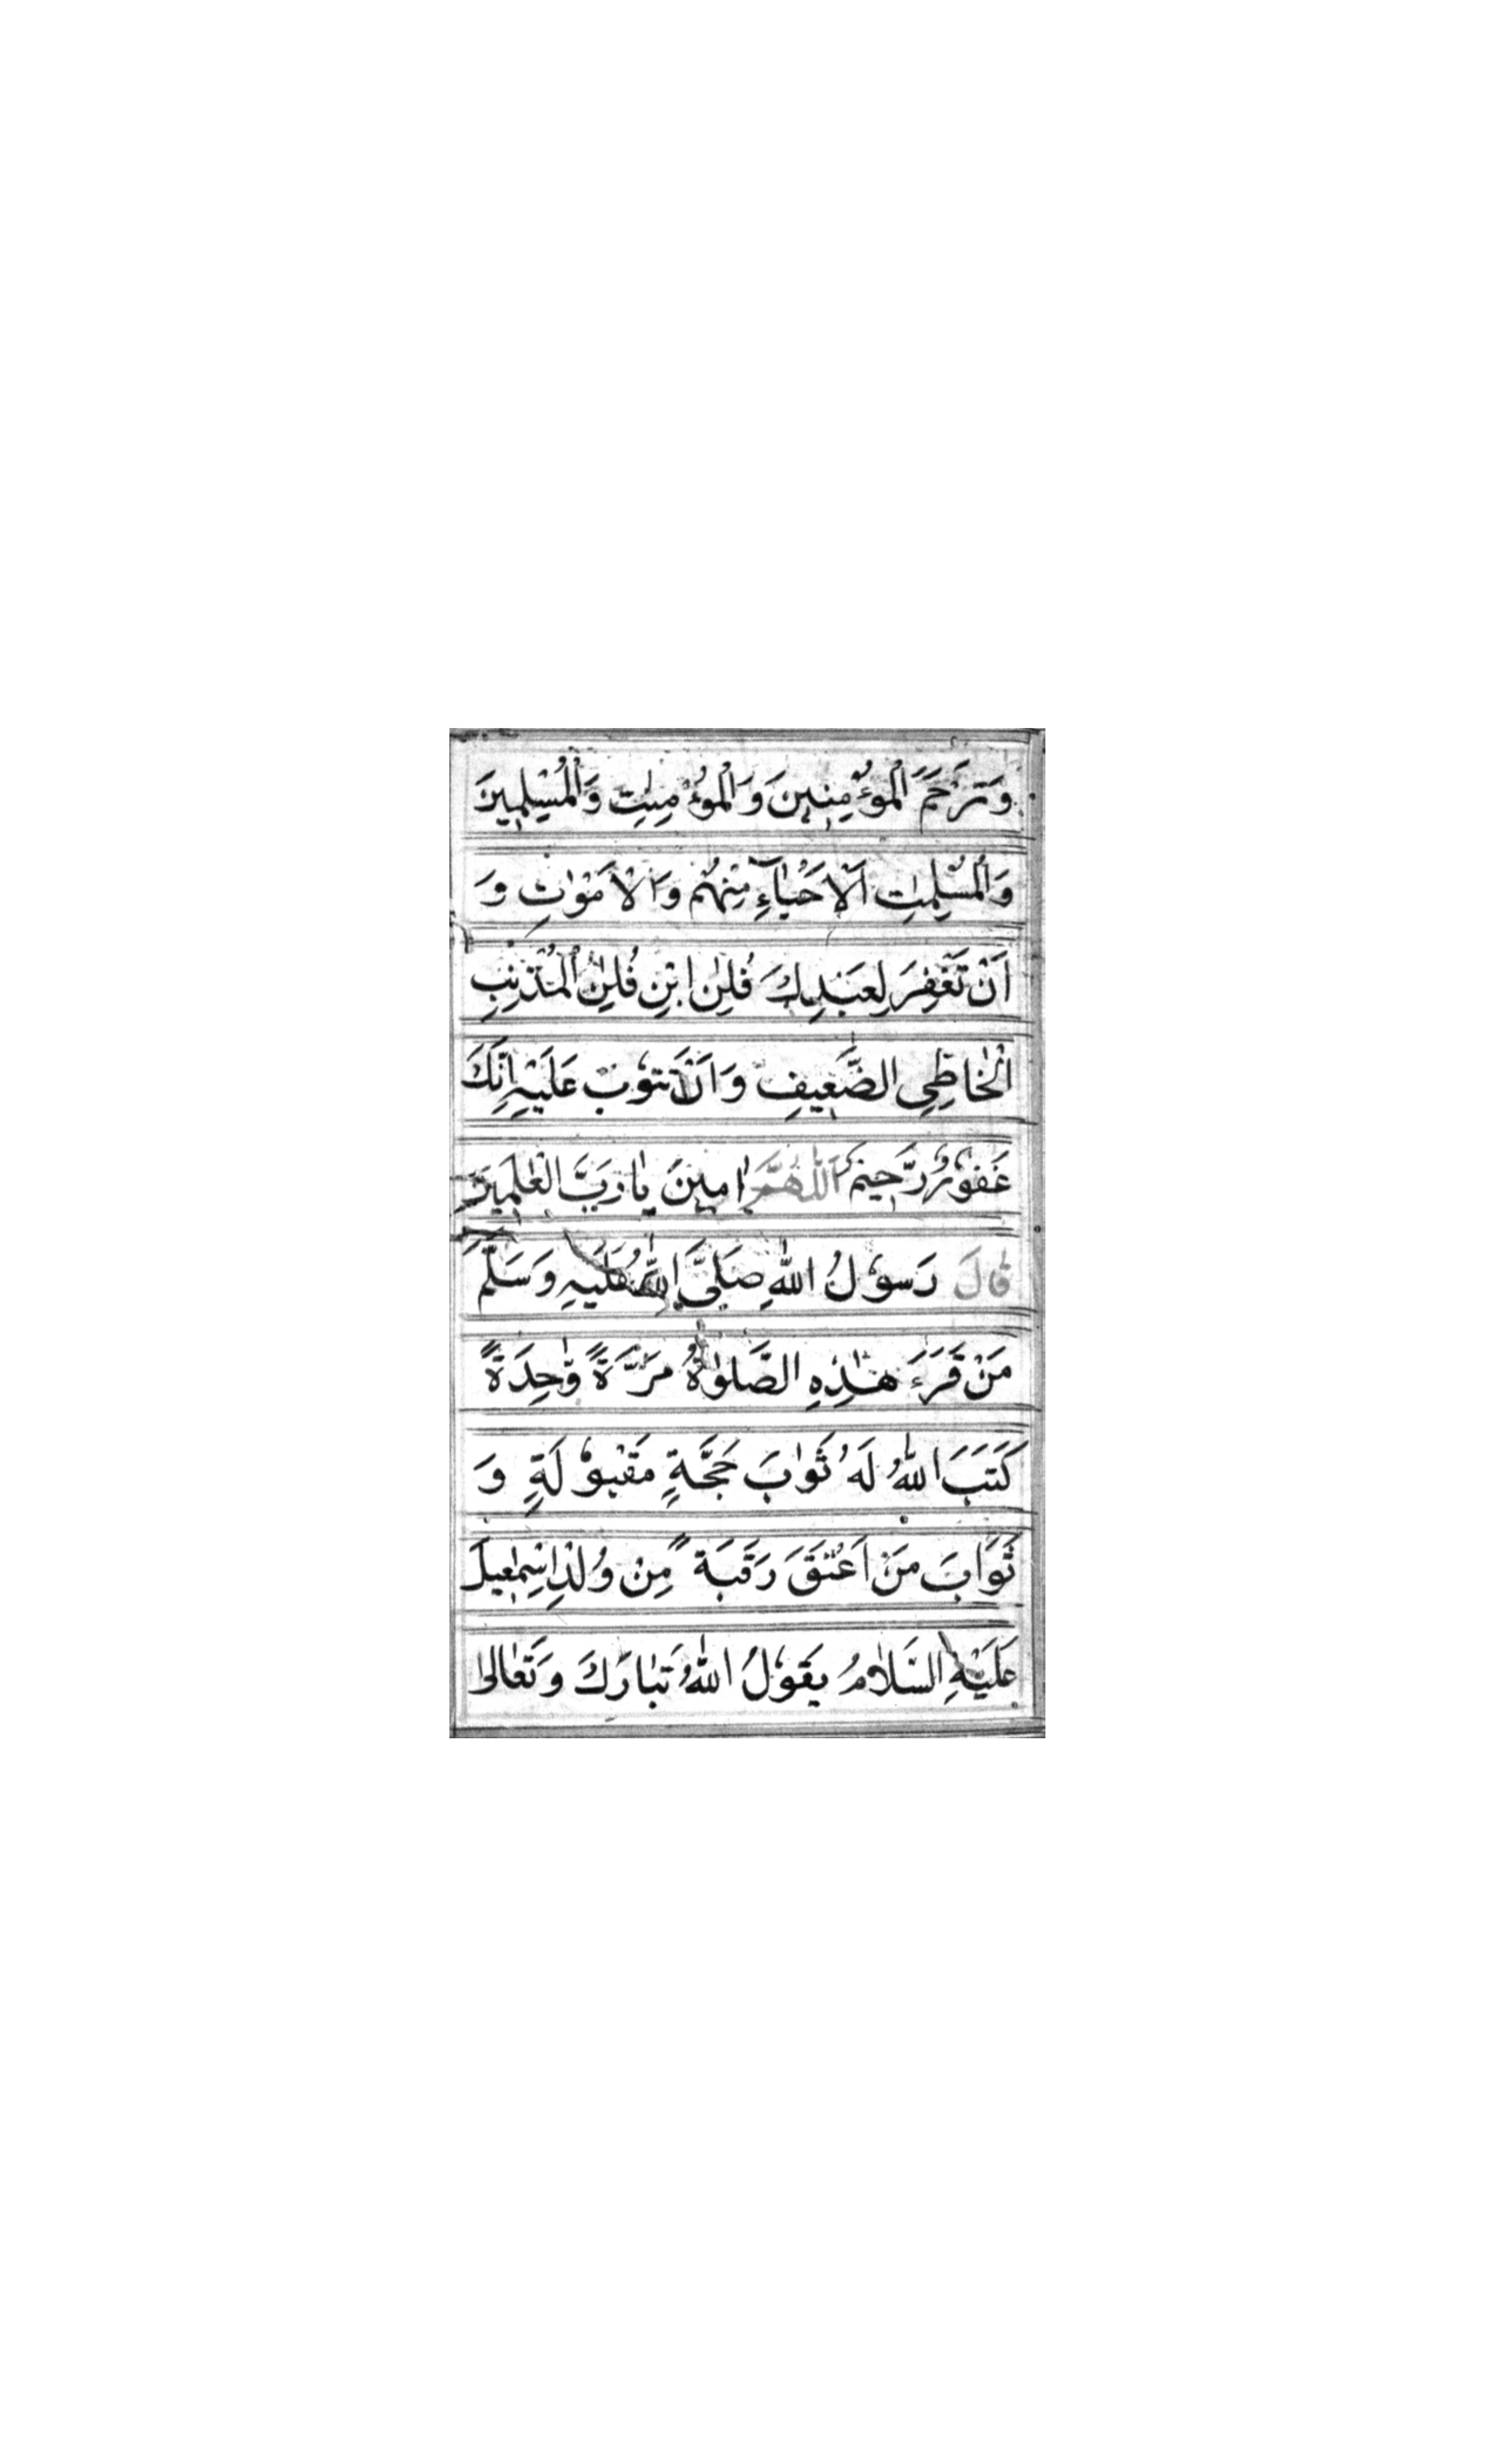 وَتَرْحَمَ الْمُوءْمِنِينَ وَالْمُوءْمِنٰتِ وَالْمُسْلِمِينَ
وَالْمُسْلِمٰتِ اَلْاَحْيَآءِ مِنْهُمْ وَالْاَمْوٰاتِ وَ
اَنْ تَغْفِرَ لِعَبْدِكَ فُلٰنِ ابْنِ فُلٰنِ الْمُذْنِبِ
الْخٰاطِئِ الضَّعِيفِ وَاَنْ تَتُوْبَ عَلَيْهِ اِنَّكَ
غَفُوْرٌ رَّحِيمٌ اَللّٰهُمَّ اٰمِينَ يٰا رَبَّ الْعٰلَمِينَ
قٰالَ رَسُوْلُ اللّٰهِ صَلَّى اللّٰهُ عَلَيْهِ وَسَلَّمَ
مَنْ قَرَءَ هٰذِهِ الصَّلٰوةُ مَرَّةً وّٰحِدَةً
كَتَبَ اللّٰهُ لَهُ ثَوٰابَ حَجَّةٍ مَقْبُوْلَةٍ وَ
ثَوَابَ مَنْ اَعْتَقَ رَقَبَةً مِنْ وُلْدِ اِسْمٰعِيلَ
عَلَيْهِ السَّلٰامُ يَقُوْلُ اللّٰهُ تَبٰارَكَ وَتَعٰالٰى